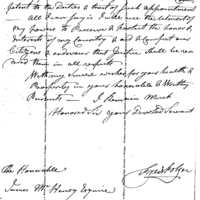 petent to the Duties & trust of such appointment
All I can say is I will use the utmost of
my powers to Preserve & protect the honor &
Interests of my Country & and Comfort our
Citizens & endeavour that Justice shall be ren
dered them in all respects
With my sincere wishes for your health &
Prosperity in your honorable & Worthy
Pursuits I Remain Much
Honored Sir your Devoted Servant
The Honorable
James McHenry Esquire